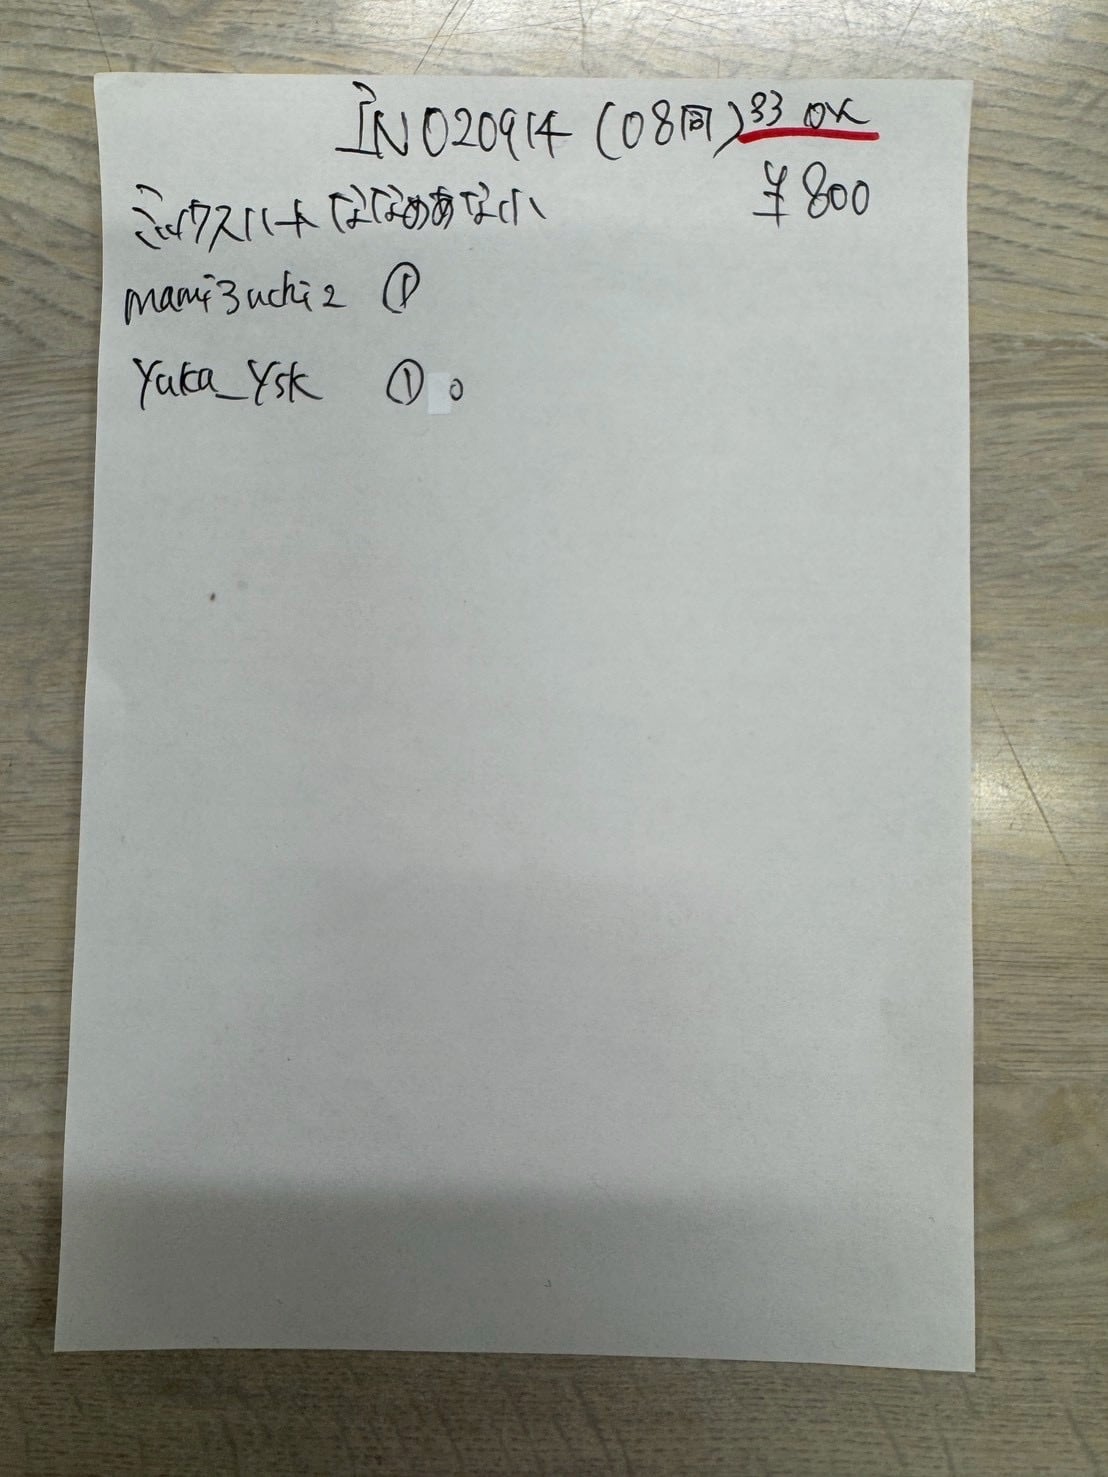 IN020914 (08同) 33 OK
ミックスハート ななめあな小 ¥800
mami3uchi2 ①
Yuka_Ysk ① 0